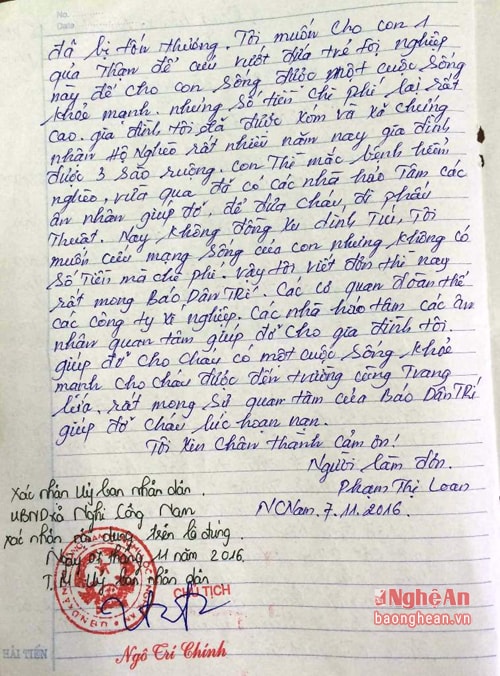 No.
Date
đã bị tổn thương. Tôi muốn cho con 1
quả Thận để cứu vớt đứa trẻ tội nghiệp
này để cho con sống được một cuộc sống
khoẻ mạnh. nhưng số tiền chi phí lại rất
cao. gia đình tôi đã được xóm và xã chứng
nhận Hộ Nghèo rất nhiều năm nay gia đình
được 3 sào ruộng. con Thì mắc bệnh hiểm
nghèo, vừa qua đã có các nhà hảo Tâm các
ân nhân giúp đỡ. để đưa cháu, đi phẩu
Thuật. Nay không đồng xu dính Túi, Tôi
muốn cứu mạng sống của con nhưng không có
Số Tiền mà chi phí. vậy tôi viết đơn thư này
rất mong Báo Dân Trí. Các cơ quan đoàn thể
các công ty xí nghiệp. Các nhà hảo tâm các ân
nhân quan tâm giúp đỡ cho gia đình tôi.
giúp đỡ cho cháu có một cuộc sống khoẻ
mạnh cho cháu được đến trường cùng Trang
lứa. rất mong Sự quan tâm của Báo Dân Trí
giúp đỡ cháu lúc hoạn nạn.
Tôi Xin Chân thành cảm ơn!
Người làm đơn.
Phạm Thị Loan
NCNam. 7.11.2016.
Xác nhận Uỷ ban nhân dân.
UBND xã Nghi Công Nam
xác nhận nội dung trên là đúng.
Ngày 07 tháng 11 năm 2016.
T.M Uỷ ban nhân dân
CHỦ TỊCH
Ngô Trí Chính
HẢI TIẾN
NghệAn
baonghean.vn